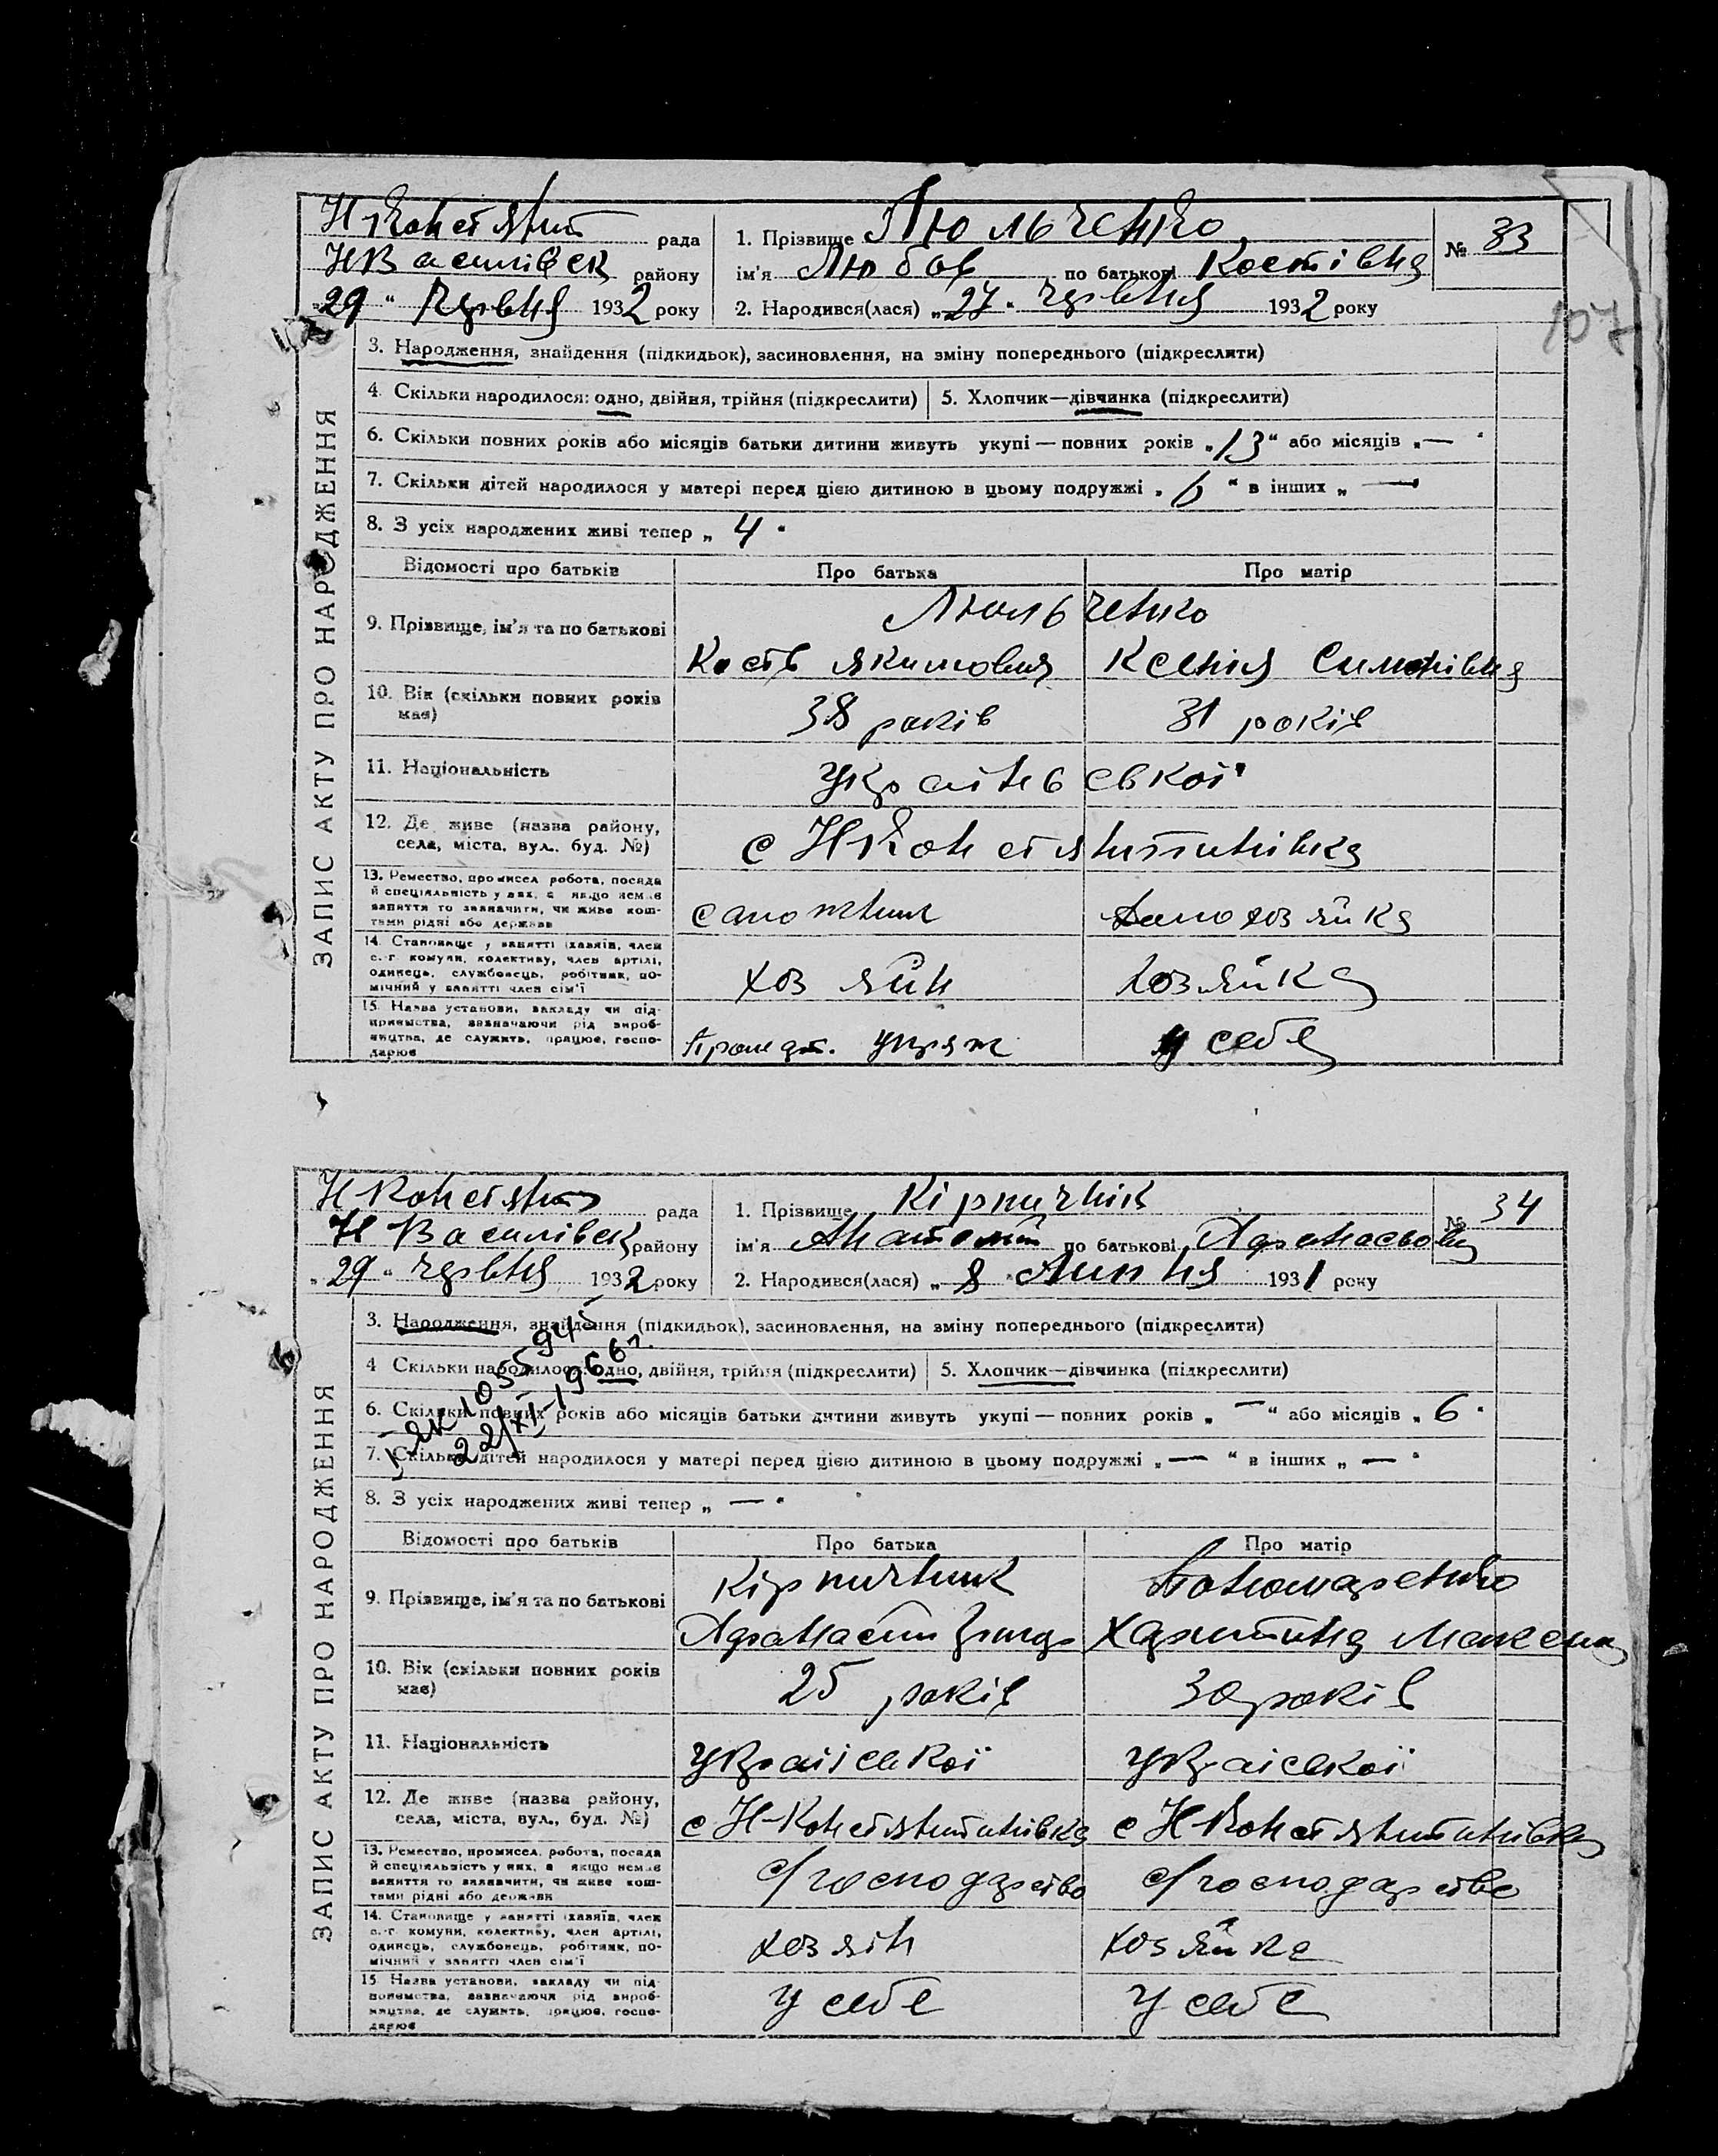 Н Констянт рада
НВасилівск району
„29“ червня 1932 року
1. Прізвище Люльченко
ім'я Любов по батькові Костівна
2. Народився(лася) „27“ червня 1932 року
№ 33
107
ЗАПИС АКТУ ПРО НАРОДЖЕННЯ
3. Народження, знайдення (підкидьок), засиновлення, на зміну попереднього (підкреслити)
4. Скільки народилося: одно, двійня, трійня (підкреслити)
5. Хлопчик—дівчинка (підкреслити)
6. Скільки повних років або місяців батьки дитини живуть укупі — повних років „13“ або місяців „—“
7. Скільки дітей народилося у матері перед цією дитиною в цьому подружжі „6“ в інших „—“
8. З усіх народжених живі тепер „4“
Відомості про батьків Про батька Про матір
9. Прізвище, ім'я та по батькові
Люльченко
Кость Якимович Ксенія Симонівна
10. Вік (скільки повних років має)
38 років 31 років
11. Національність
Української
12. Де живе (назва району,
села, міста, вул., буд. №)
с НКонстянтинівка
13. Ремество, промисел, робота, посада
й спеціяльність у них, а якщо немає
заняття то зазначити, чи живе кош-
тами рідні або держави
сапожник домохозяйка
14. Становище у занятті (хазяїн, член
с.-г. комуни, колективу, член артілі,
одинець, службовець, робітник, по-
мічний у занятті член сім'ї
хозяйн хозяйка
15. Назва установи, закладу чи під-
приємства, зазначаючи рід вироб-
ництва, де служить, працює, госпо-
дарює
у себе
Н Констянт рада
Н Василівск району
„29“ червня 1932 року
1. Прізвище Кірпичнік
ім'я Анатолій по батькові Афанасьовч
2. Народився(лася) „8“ Липня 1931 року
№ 34
ЗАПИС АКТУ ПРО НАРОДЖЕННЯ
3. Народження, знайдення (підкидьок), засиновлення, на зміну попереднього (підкреслити)
4 Скільки народилося: одно, двійня, трійня (підкреслити)
5. Хлопчик—дівчинка (підкреслити)
6. Скільки повних років або місяців батьки дитини живуть укупі — повних років „—“ або місяців „6“
7. Скільки дітей народилося у матері перед цією дитиною в цьому подружжі „—“ в інших „—“
8. З усіх народжених живі тепер „—“
22/XI-1966г.
Відомості про батьків Про батька Про матір
9. Прізвище, ім'я та по батькові
Кірпичник Пономаренко
Афанасий Харитина Максим
10. Вік (скільки повних років має)
25 років 30 років
11. Національність
Україіської Україської
12. Де живе (назва району,
села, міста, вул., буд. №)
с Н-Констянтинівка с НКонстянтинівка
13. Ремество, промисел, робота, посада
й спеціяльність у них, а якщо немає
заняття то зазначити, чи живе кош-
тами рідні або держави
с/господарство с/господарство
14. Становище у занятті (хазяїн, член
с.-г. комуни, колективу, член артілі,
одинець, службовець, робітник, по-
мічний у занятті член сім'ї
хозяін хозяйка
15 Назва установи, закладу чи під-
приємства, зазначаючи рід вироб-
ництва, де служить, працює, госпо-
дарює
у себе у себе